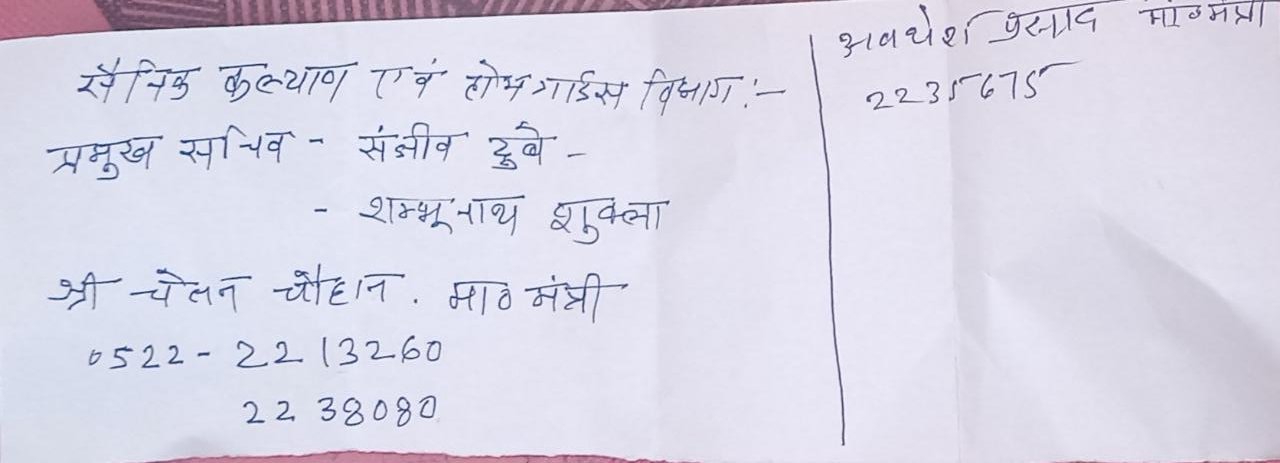 सैनिक कल्याण एवं होमगार्डस विभाग :-
प्रमुख सचिव - संजीव दुबे -
- शम्भूनाथ शुक्ला
श्री चेतन चौहान. मा० मंत्री
0522 - 2213260
2238080
अवधेश प्रसाद मा० मंत्री
2235675